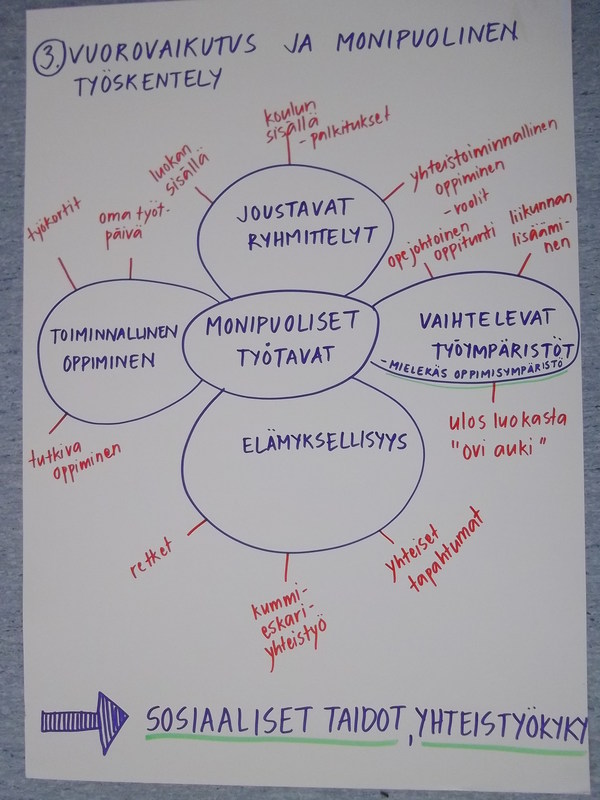 3. VUOROVAIKUTUS JA MONIPUOLINEN
TYÖSKENTELY
koulun
sisällä
- palkitukset
luokan
sisällä
yhteistoiminnallinen
oppiminen
- roolit
JOUSTAVAT
RYHMITTELYT
työkortit
oma työt.
päivä
opejohtoinen
oppitunti
liikunnan
lisäämi-
nen
TOIMINNALLINEN
OPPIMINEN
MONIPUOLISET
TYÖTAVAT
VAIHTELEVAT
TYÖYMPÄRISTÖT
- MIELEKÄS OPPIMISYMPÄRISTÖ
tutkiva
oppiminen
ELÄMYKSELLISYYS
ulos luokasta
"ovi auki"
retket
kummi-
eskari-
yhteistyö
yhteiset
tapahtumat
SOSIAALISET TAIDOT, YHTEISTYÖKYKY